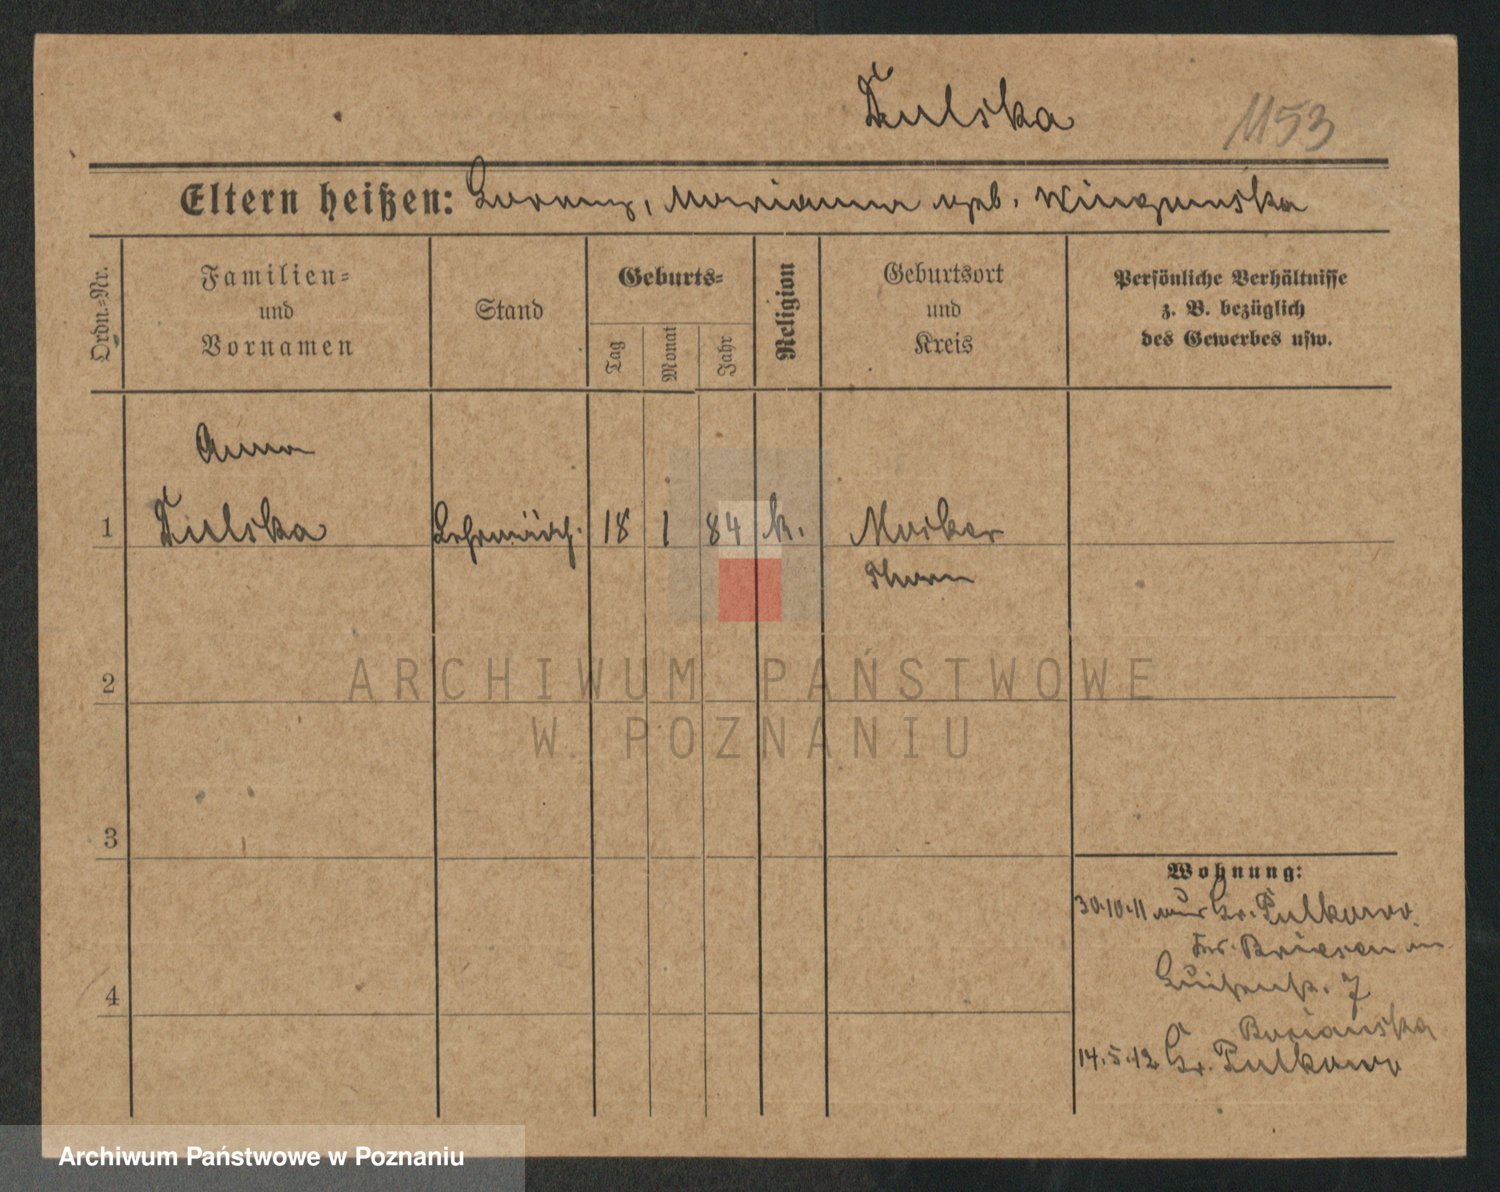 Zulska
1153
Eltern heißen: Lorenz, Marianna geb.
Ordn.-Nr.
Familien=
und
Vornamen
Stand
Geburts=
Tag
Monat
Jahr
Religion
Geburtsort
und
Kreis
Persönliche Verhältnisse
z. B. bezüglich
des Gewerbes usw.
Anna
1 Zulska Lehrmädch. 18 1 84 k. Mocker
Thorn
2
3
4
Wohnung:
30.10.11 aus Gr. Pulkowo
Krs. Briesen in
Luisenstr. 7
14.5.12 Gr. Pulkowo
ARCHIWUM PAŃSTWOWE
W POZNANIU
Archiwum Państwowe w Poznaniu